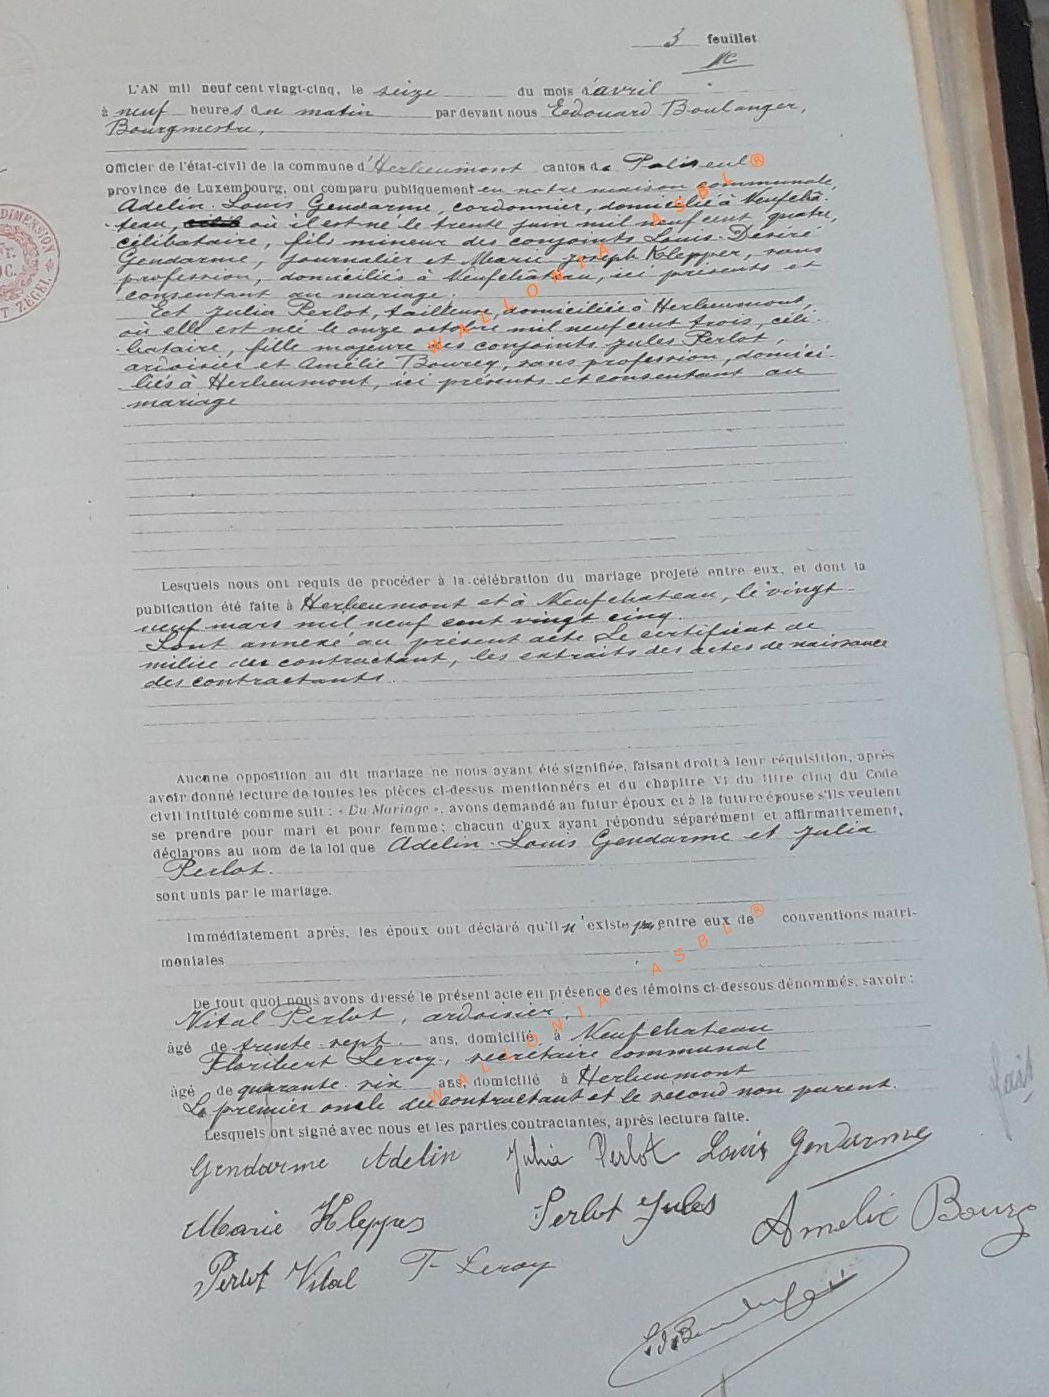 3 feuillet
L'AN mil neuf cent vingt-cinq, le seize du mois d'avril
à neuf heures du matin par devant nous Edouard Boulanger,
Bourgmestre,
officier de l'état-civil de la commune d'Herbeumont canton de Paliseul
province de Luxembourg, ont comparu publiquement en notre maison communale,
Adelin-Louis Gendarme, cordonnier, domicilié à Neufchâ-
teau, où il est né le trente juin mil neuf cent quatre,
célibataire, fils mineur des conjoints Louis-Désiré
Gendarme, journalier et Marie Joseph Klepper, sans
profession, domiciliés à Neufchâteau, ici présents et
consentant au mariage.
Eet Julia Perlot, tailleuse, domiciliée à Herbeumont,
où elle est née le onze octobre mil neuf cent trois, céli-
bataire, fille majeure des conjoints Jules Perlot,
ardoisier et Amélie Bourcy, sans profession, domici-
liés à Herbeumont, ici présents et consentant au
mariage
Lesquels nous ont requis de procéder à la célébration du mariage projeté entre eux, et dont la
publication été faite à Herbeumont et à Neufchateau, le vingt-
neuf mars mil neuf cent vingt cinq.
Sont annexé au présent acte le certificat de
milice du contractant, les extraits des actes de naissance
des contractants.
Aucune opposition au dit mariage ne nous ayant été signifiée, faisant droit à leur réquisition, après
avoir donné lecture de toutes les pièces ci-dessus mentionnées et du chapitre VI du titre cinq du Code
civil intitulé comme suit : « Du Mariage », avons demandé au futur époux et à la future épouse s'ils veulent
se prendre pour mari et pour femme ; chacun d'eux ayant répondu séparément et affirmativement,
déclarons au nom de la loi que Adelin-Louis Gendarme et Julia
Perlot.
sont unis par le mariage.
Immédiatement après, les époux ont déclaré qu'il n'existe pas entre eux de conventions matri-
moniales
De tout quoi nous avons dressé le présent acte en présence des témoins ci-dessous dénommés, savoir :
Vital Perlot, ardoisier,
âgé de trente sept ans, domicilié à Neufchateau
Floribert Leroy, secrétaire communal
âgé de quarante-six ans, domicilié à Herbeumont
Le premier oncle du contractant et le second non parent.
Lesquels ont signé avec nous et les parties contractantes, après lecture faite.
Gendarme Adelin Julia Perlot Louis Gendarme
Marie Klepper Perlot Jules Amélie Bourcy
Perlot Vital F Leroy
WALLONIA ASBL®
WALLONIA ASBL®